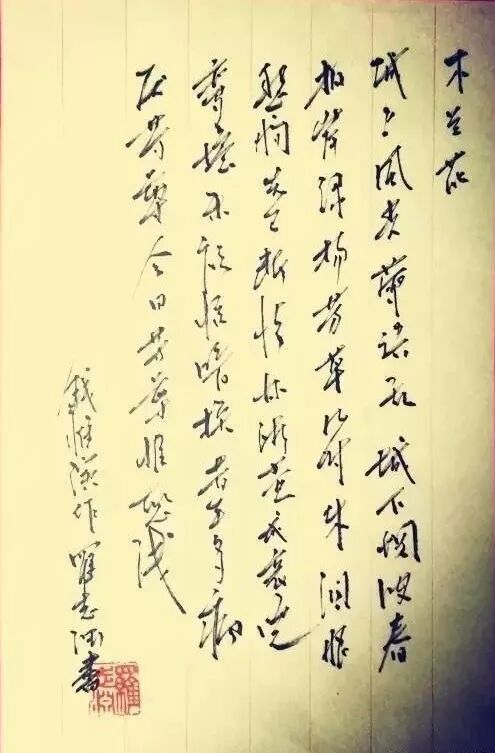 木兰花
城上风光莺语乱城下烟波春
拍岸绿杨芳草几时休泪眼
愁肠先已断情怀渐觉成衰晚
鸾镜朱颜惊暗换昔年多病
厌芳尊今日芳尊惟恐浅
钱惟演作 罗志书